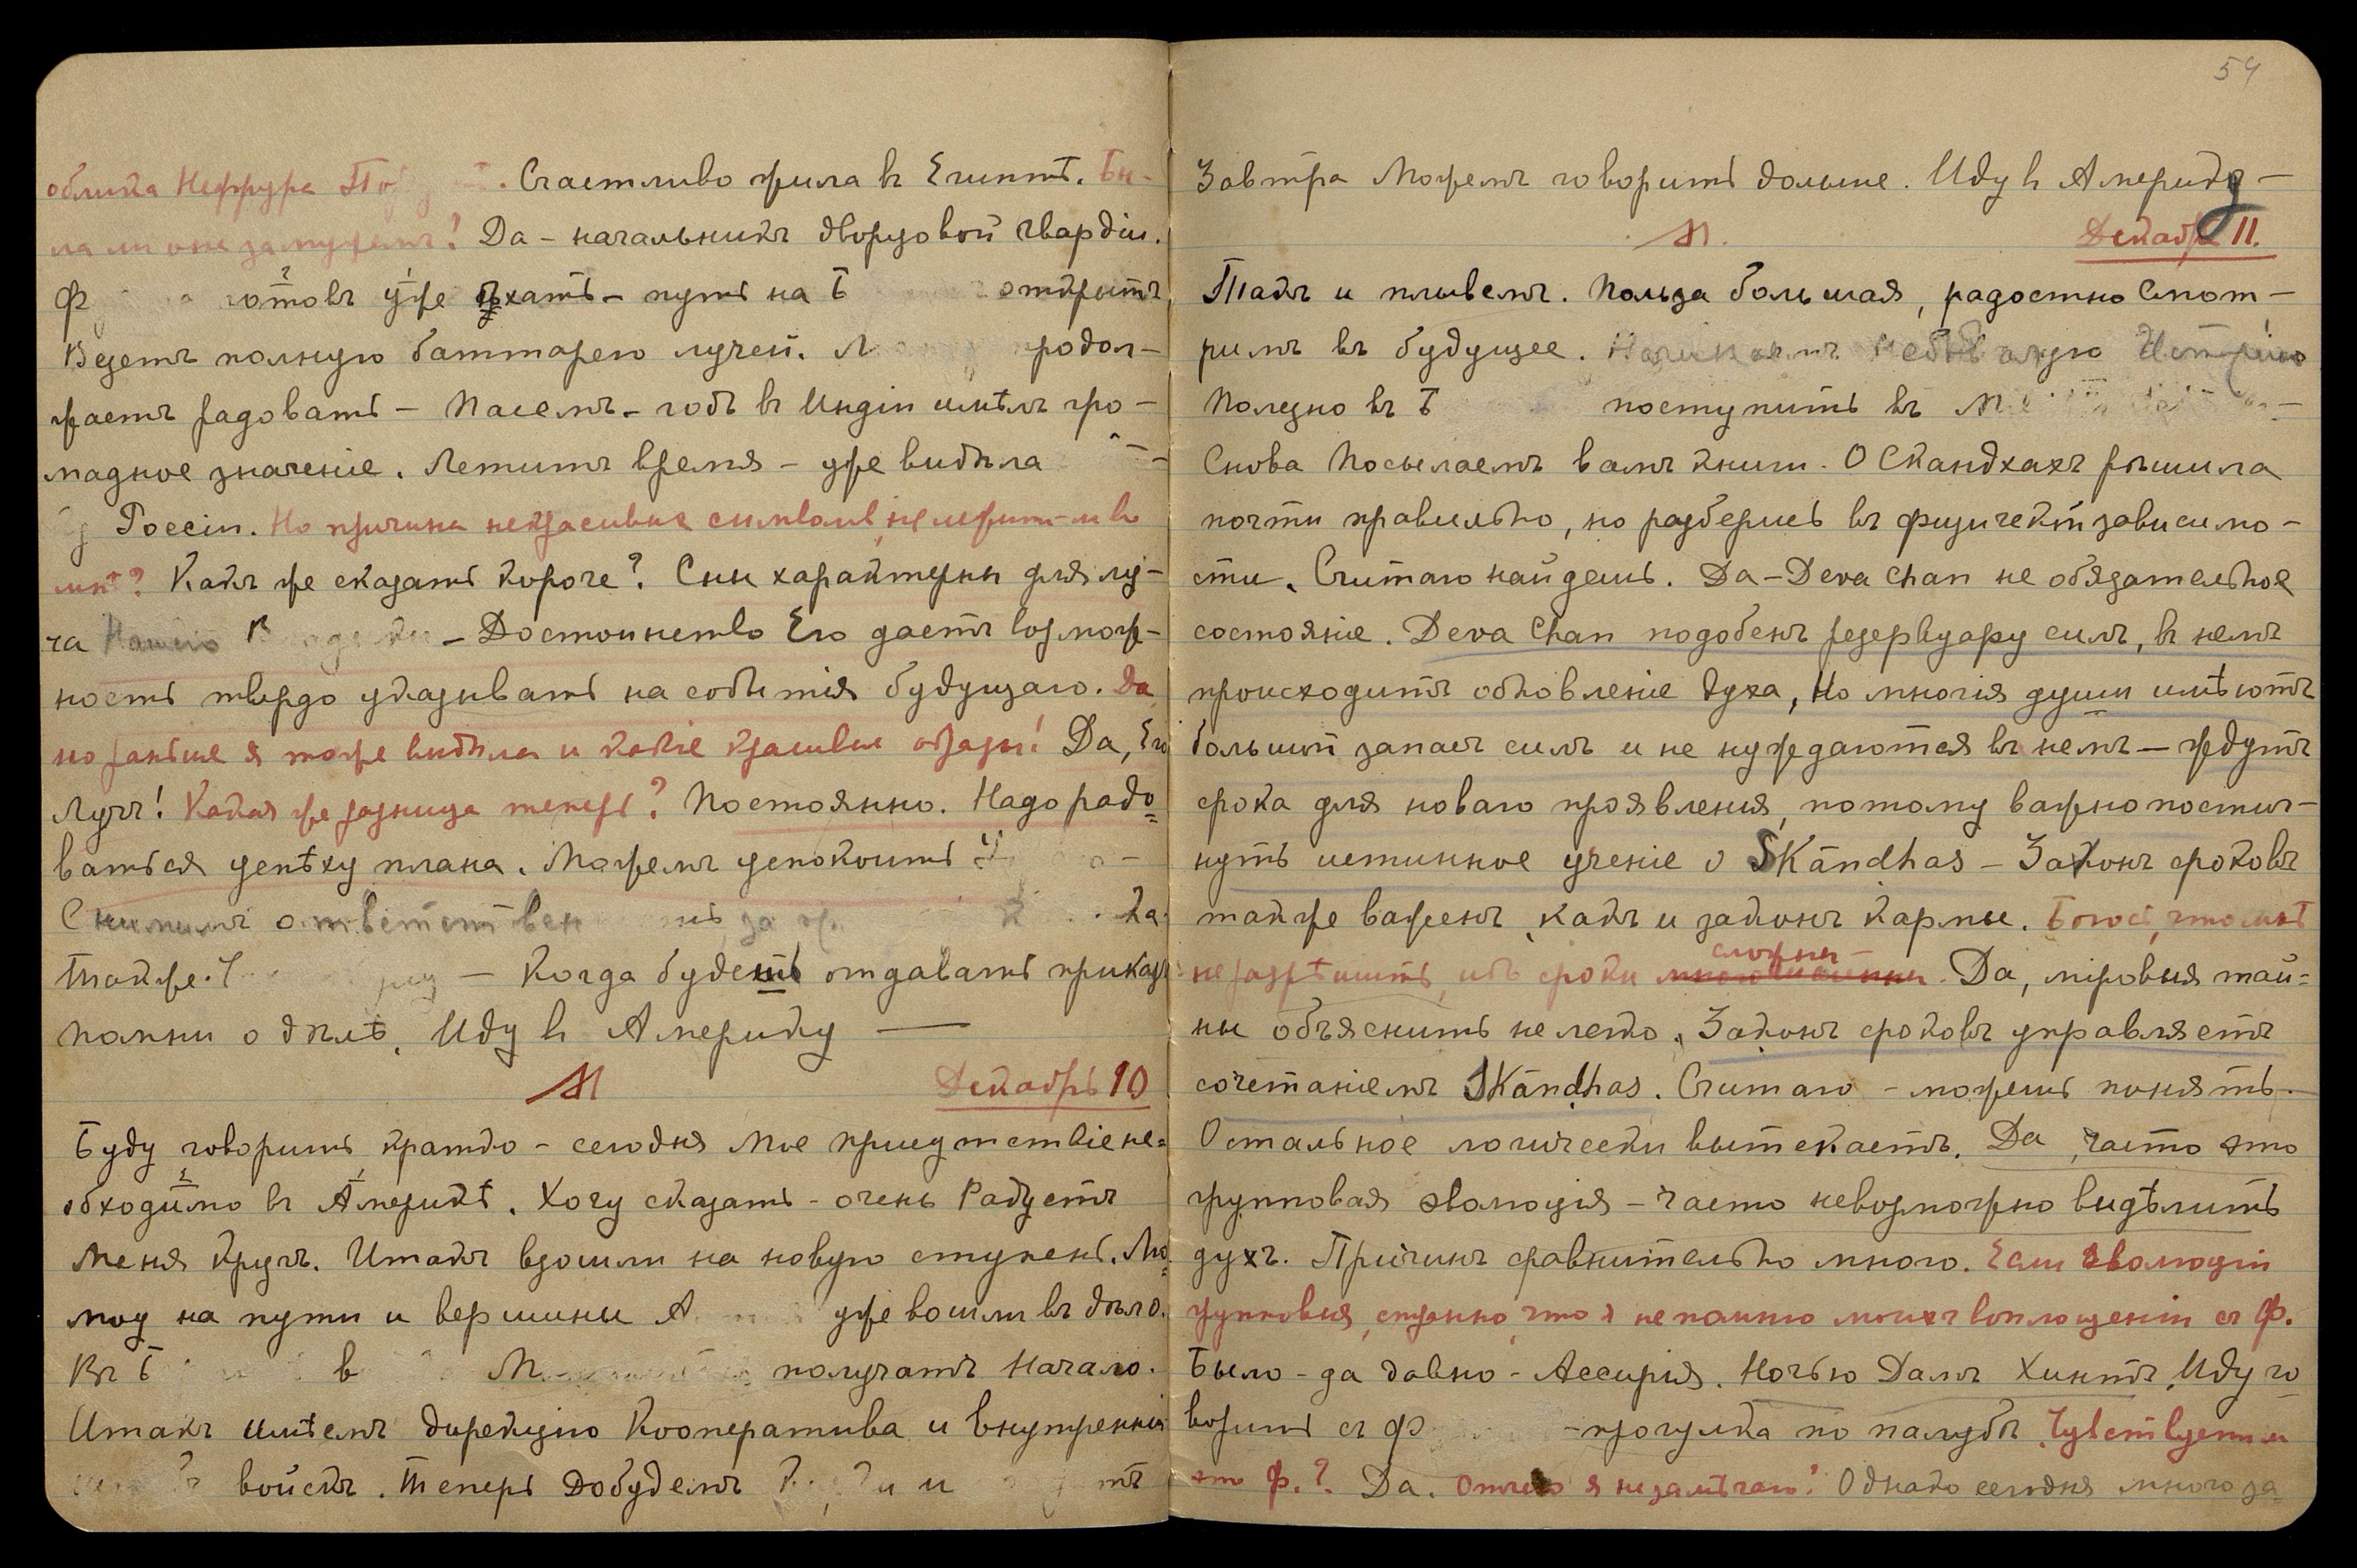 облика Неффура. Счастливо жила въ Египтѣ. Бы-
ла ли она замужемъ? Да – начальникъ дворцовой гвардіи.
Ф готовъ уже ѣхать – путь на Б открытъ
Везетъ полную баттарею лучей. продол-
жаетъ радовать – Пасемъ – годъ въ Индіи имѣлъ гро-
мадное значеніе. Летитъ время – уже видѣла
Россіи. Но причина некрасивые символы,
мнѣ? Какъ же сказать короче? Сны характерны для лу-
ча Нашего В – Достоинство Его даетъ возмож-
ность твердо указывать на событія будущаго. Да,
но раньше я тоже видѣла и какіе красивые образы! Да, Его
Лучъ! Какая же разница теперь? Постоянно. Надо радо-
ваться успѣху плана. Можемъ успокоить
Снимимъ ответствен за ка
также. – Когда будешь отдавать приказы
помни о дѣлѣ. Иду въ Америку —
М Декабрь 10
Буду говорить кратко – сегодня Мое присутствіе не-
обходимо въ Америкѣ. Хочу сказать – очень Радуетъ
Меня кругъ. Итакъ взошли на новую ступень.
на пути и вершины А уже вошли въ дѣло.
Въ Б в М получатъ Начало.
Итакъ имѣемъ дирекцію Кооператива и внутреннія
войскъ. Теперь Добудемъ и тъ
54
Завтра Можемъ говорить дольше. Иду въ Америку –
М. Декабрь 11.
Такъ и плывемъ. Польза большая, радостно Смот-
римъ въ будущее. Начинаемъ небывалую Исторію
Полезно въ Б поступить въ М
Снова Посылаемъ вамъ книги. О Скандхахъ рѣшила
почти правильно, но разберись въ физическ зависимо-
сти. Считаю найдешь. Да – Deva Chan не обязательное
состояніе. Deva Chan подобенъ резервуару силъ, въ немъ
происходитъ обновленіе духа, Но многія души имѣютъ
большой запасъ силъ и не нуждаются въ немъ – ждутъ
срока для новаго проявленія, потому важно постиг-
нуть истинное ученіе о Skandhas – Законъ сроковъ
также важенъ, какъ и законъ кармы. Боюсь, что мнѣ
не разрѣшить, ибо сроки сложны –. Да, міровыя тай-
ны объяснить не легко. Законъ сроковъ управляетъ
сочетаніемъ Skandhas. Считаю – можешь понять. –
Остальное логически вытекаетъ. Да, часто это
групповая эволюція – часто невозможно выдѣлить
духъ. Причинъ сравнительно много. Если эволюціи
групповыя, странно, что я не помню моихъ воплощеній съ Ф.
Было – да давно – Ассирія. Ночью Далъ Хинтъ. Иду го
ворить съ Ф – прогулка по палубѣ. Чувствуетъ ли
это Ф.? Да. Отчего я не замѣчаю? Однако сегодня много за-